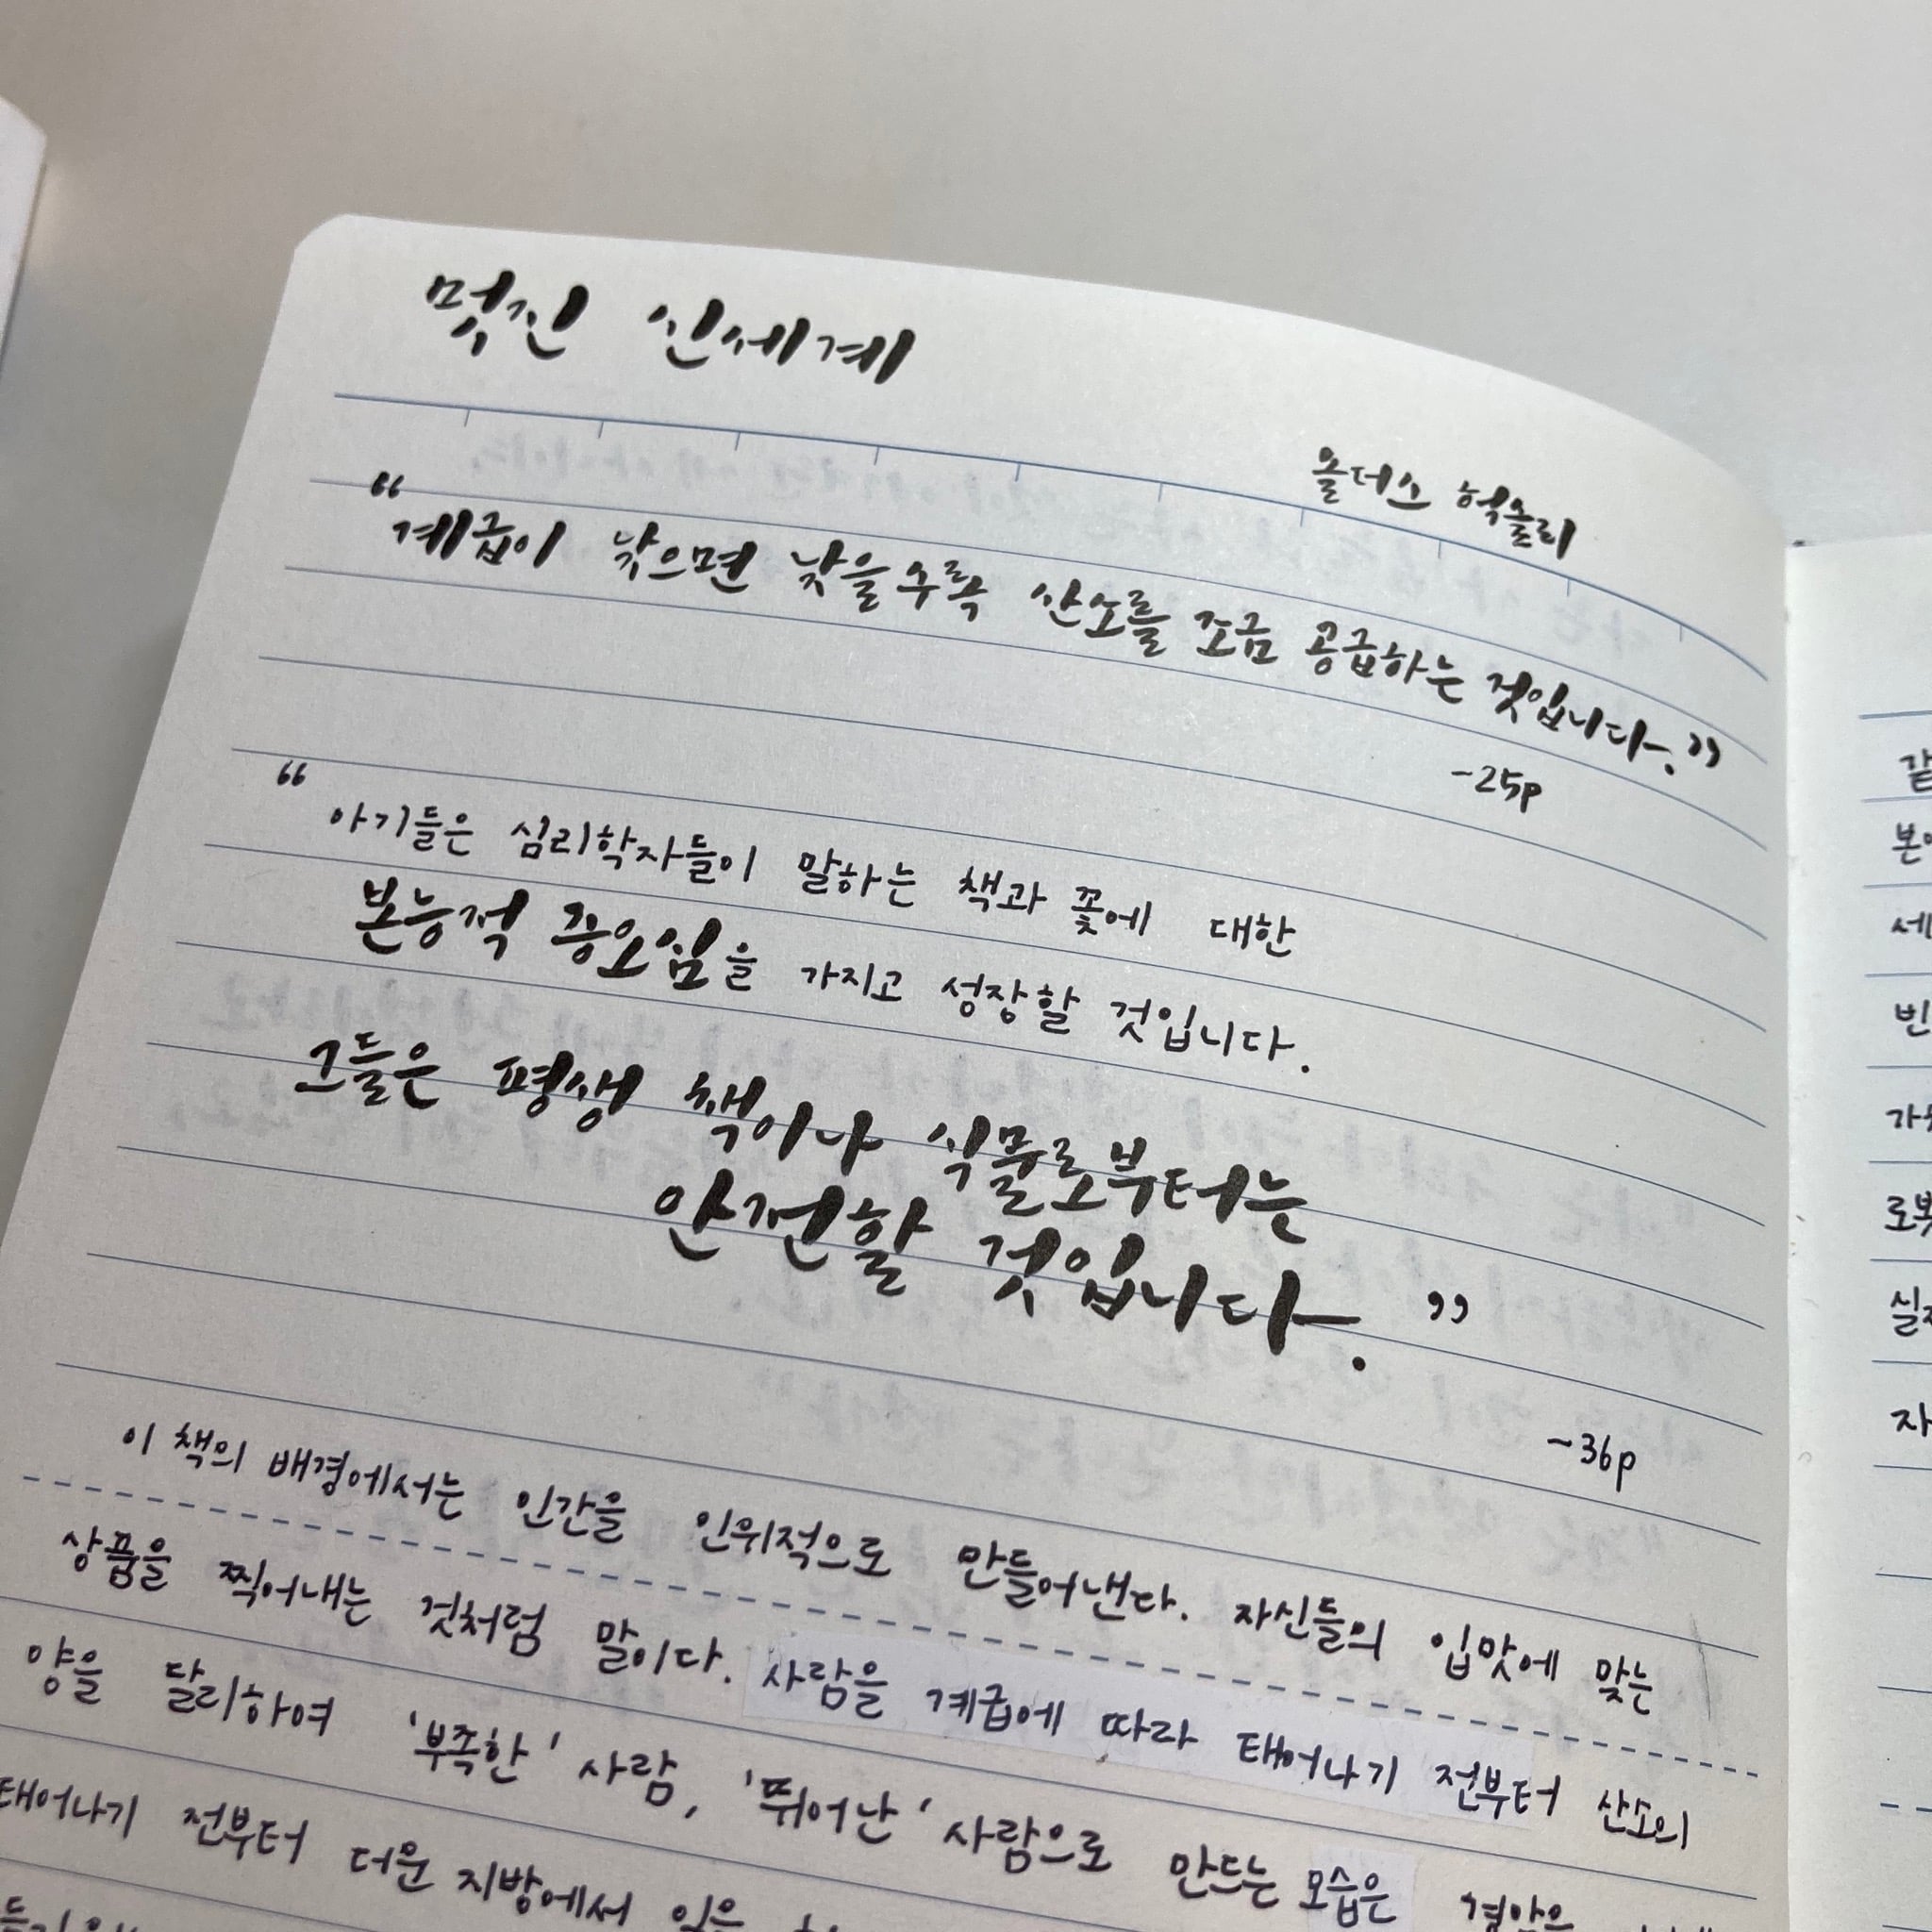 멋진 신세계
올더스 헉슬리
“계급이 낮으면 낮을수록 산소를 조금 공급하는 것입니다.”
-25p
“
아기들은 심리학자들이 말하는 책과 꽃에 대한
본능적 증오심을 가지고 성장할 것입니다.
그들은 평생 책이나 식물로부터는
안전할 것입니다.”
-36p
이 책의 배경에서는 인간을 인위적으로 만들어낸다. 자신들의 입맛에 맞는
상품을 찍어내는 것처럼 말이다. 사람을 계급에 따라 태어나기 전부터 산소의
양을 달리하여 '부족한' 사람, '뛰어난' 사람으로 만드는 모습은
태어나기 전부터 더운 지방에서
본
세
빈
로봇